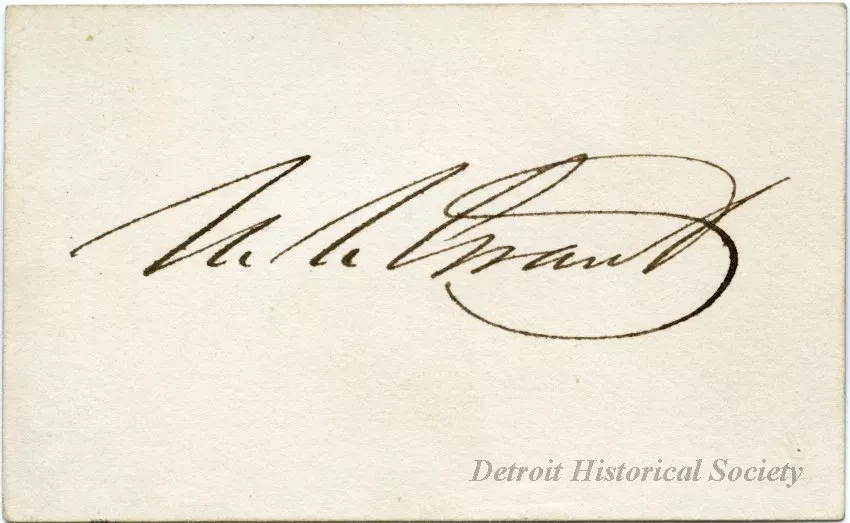 U.S. Grant
Detroit Historical Society